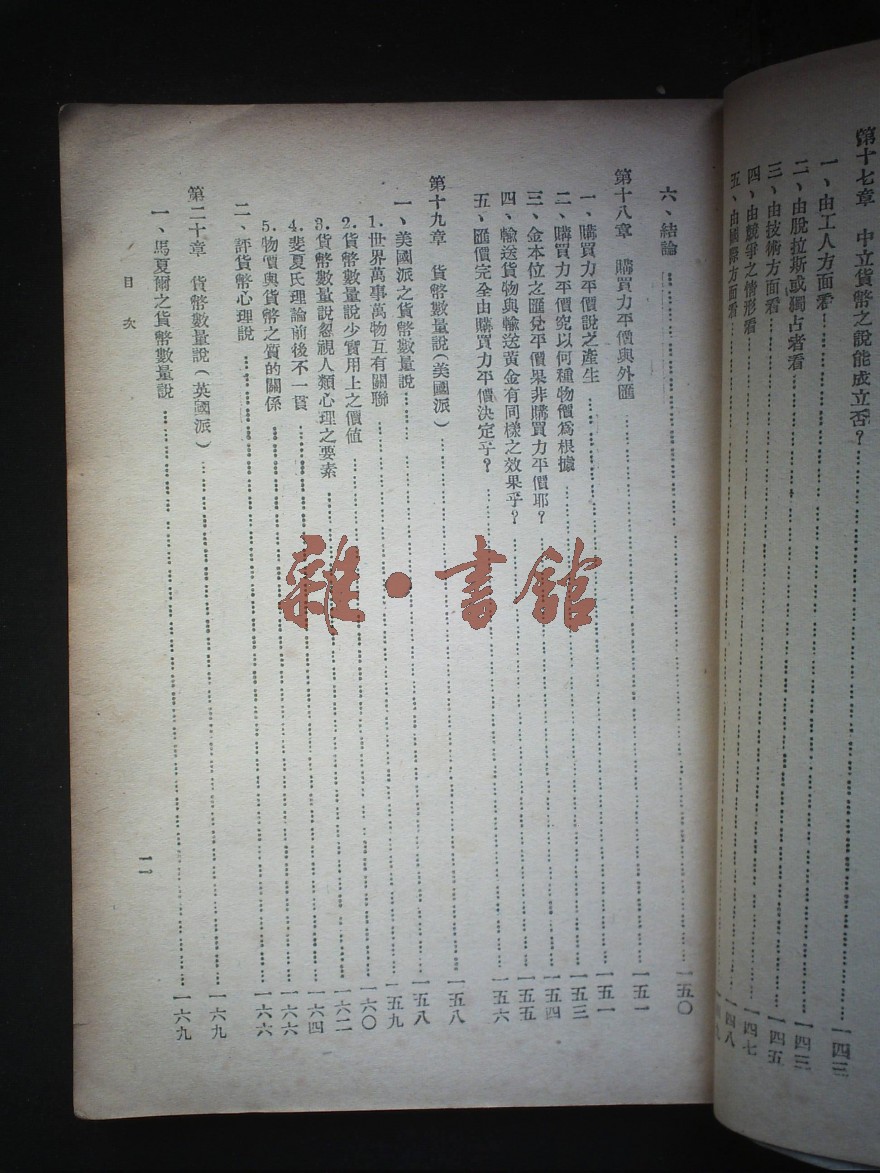 第十七章　中立貨幣之說能成立否？……
一、由工人方面看……一四三
二、由脫拉斯或獨占者看……一四三
三、由技術方面看……一四五
四、由競爭之情形看……一四七
五、由國際方面看……一四八
六、結論……一五〇
第十八章　購買力平價與外匯……一五一
一、購買力平價說之產生……一五一
二、購買力平價究以何種物價爲根據……一五三
三、金本位之匯兌平價果非購買力平價耶？……一五四
四、輸送貨物與輸送黃金有同樣之效果乎？……一五五
五、匯價完全由購買力平價決定乎？……一五六
第十九章　貨幣數量說(美國派)……一五八
一、美國派之貨幣數量說……一五八
1.世界萬事萬物互有關聯……一五九
2.貨幣數量說少實用上之價値……一六〇
3.貨幣數量說忽視人類心理之要素……一六二
4.斐夏氏理論前後不一貫……一六四
5.物價與貨幣之質的關係……一六六
二、評貨幣心理說……一六六
第二十章　貨幣數量說(英國派)……一六九
一、馬夏爾之貨幣數量說……一六九
目次
一一
雜·書館